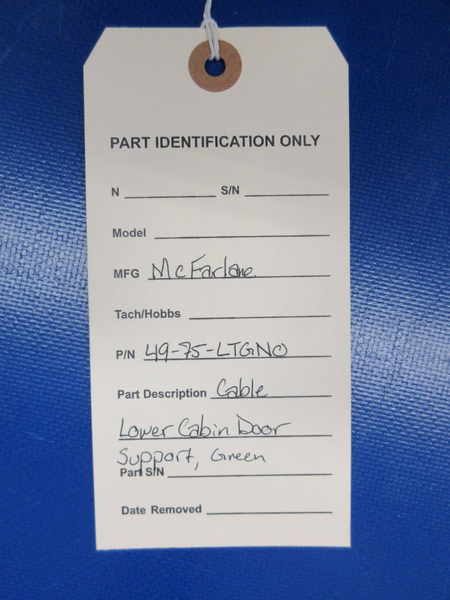 PART IDENTIFICATION ONLY
N S/N
Model
MFG McFarlane
Tach/Hobbs
P/N 49-75-LTGNO
Part Description Cable
Lower Cabin Door
Support, Green
Part S/N
Date Removed